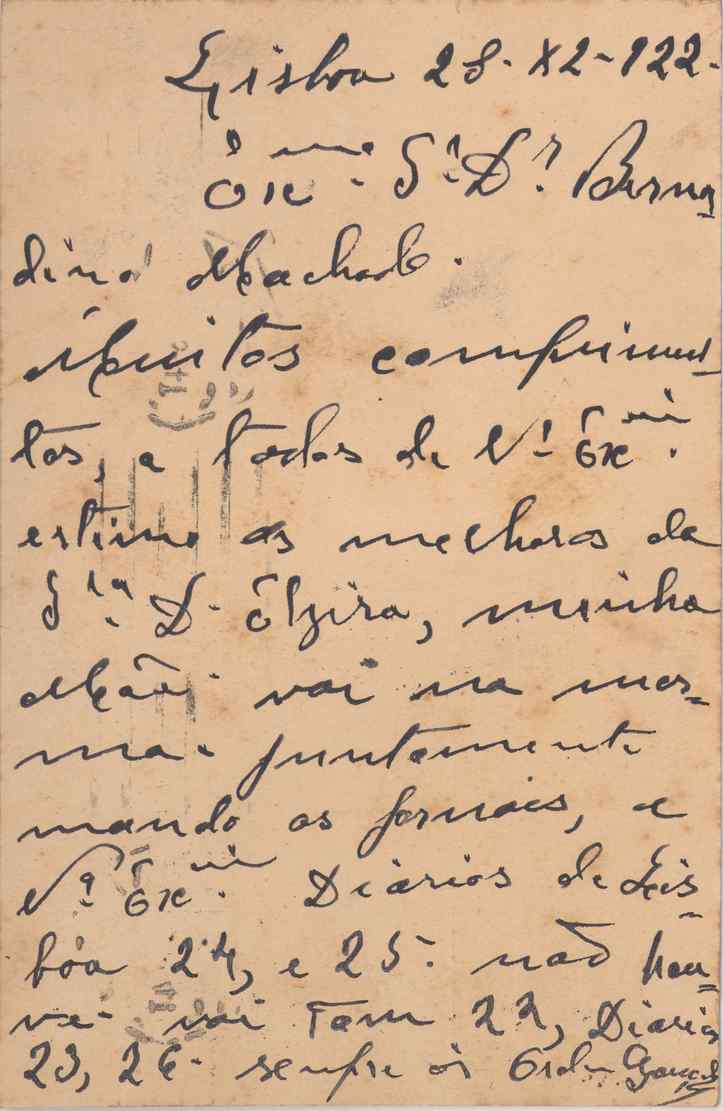 Lisboa 28-XII-922-
Exmo. Sr. Dr. Bernar
dino Machado.
Muitos comprimen-
tos, a todos de V. Excia.
estimo as melhoras da
Sra. D. Elzira, minha
Mãe vai na mes-
ma. juntamente
mando os jornais, a
Va. Excia. Diarios de Lis
bôa 24, e 25. não hou-
ve- vai Tam 22, Diarios
23, 26- senpre ás Ordens